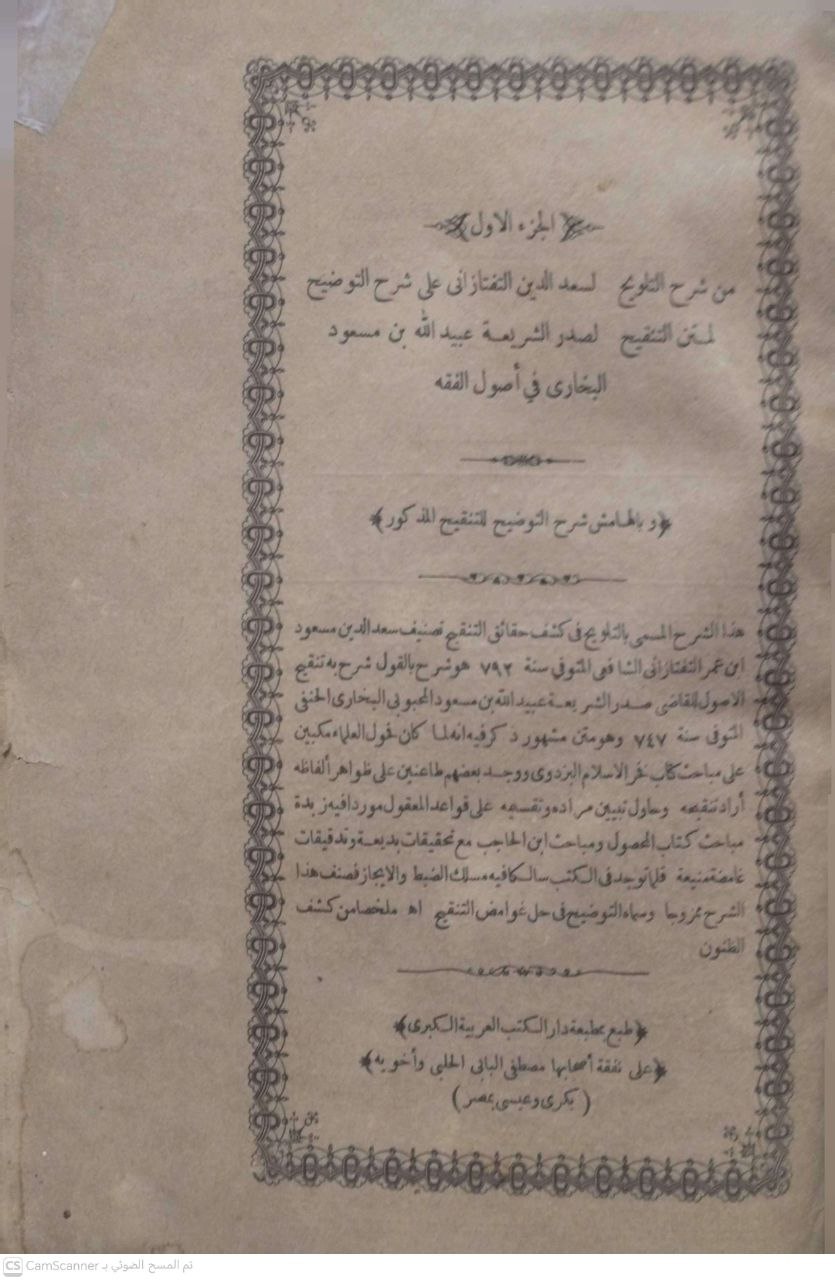 الجزء الاول
من شرح التلويح لسعد الدين التفتازانى على شرح التوضيح
لمتن التنقيح لصدر الشريعة عبيد الله بن مسعود
البخارى في أصول الفقه
﴿وبالهامش شرح التوضيح للتنقيح المذكور﴾
هذا الشرح المسمى بالتلويح فى كشف حقائق التنقيح تصنيف سعد الدين مسعود
ابن عمر التفتازانى الشافعى المتوفى سنة ٧٩٢ هو شرح بالقول شرح به تنقيح
الاصول للقاضى صدر الشريعة عبيد الله بن مسعود المحبوبى البخارى الحنفى
المتوفى سنة ٧٤٧ وهو متن مشهور ذكر فيه انه لما كان فحول العلماء مكبين
على مباحث كتاب فخر الاسلام البزدوى ووجد بعضهم طاعنين على ظواهر ألفاظه
أراد تنقيحه وحاول تبيين مراده وتقسيمه على قواعد المعقول موردا فيه زبدة
مباحث كتاب المحصول ومباحث ابن الحاجب مع تحقيقات بديعة وتدقيقات
غامضة منيعة قلما توجد فى الكتب سالكا فيه مسلك الضبط والايجاز فصنف هذا
الشرح ممزوجا وسماه التوضيح فى حل غوامض التنقيح اه ملخصا من كشف
الظنون
﴿طبع بمطبعة دار الكتب العربية الكبرى﴾
﴿على نفقة أصحابها مصطفى البابى الحلبى وأخويه﴾
(بكرى وعيسى بمصر)
CS CamScanner تم المسح الضوئي بـ